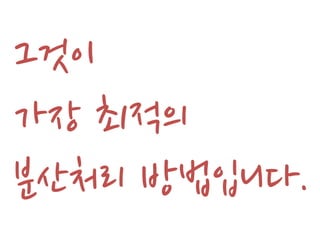 그것이
가장 최적의
분산처리 방법입니다.